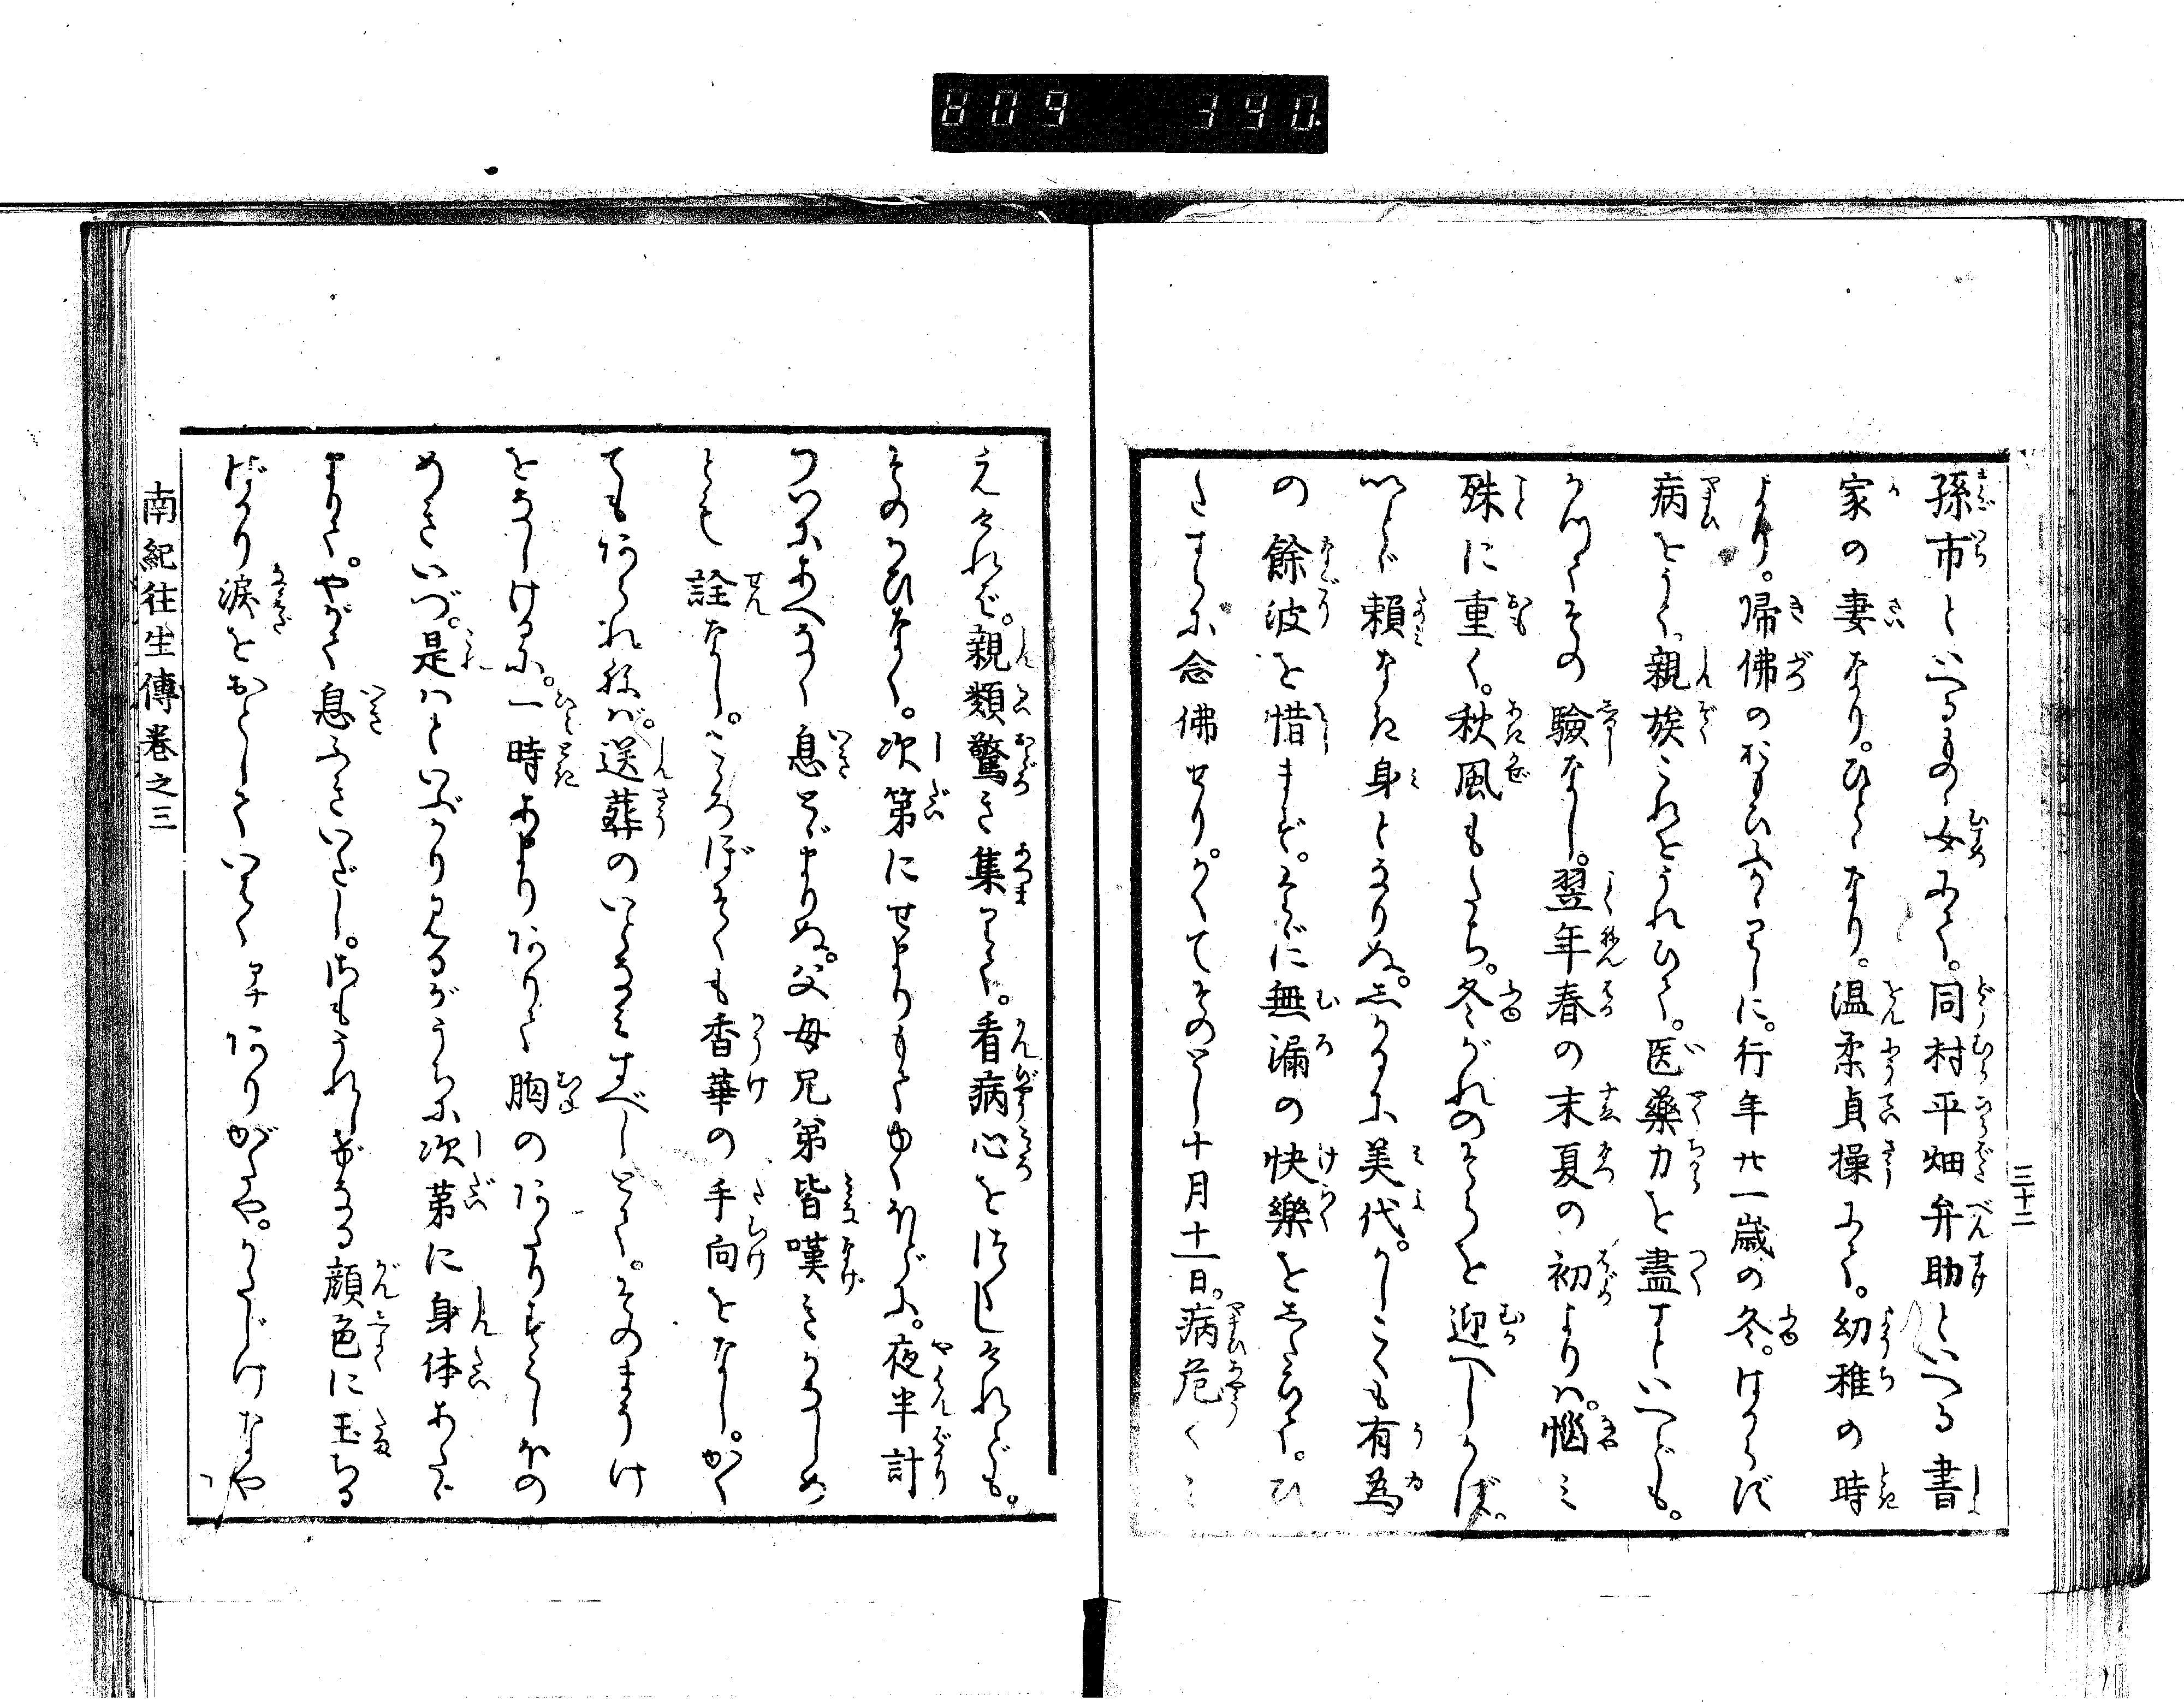 809 390
三十二
孫市といへるものゝ女にて。同村平畑弁助といへる書
家の妻なり。ひとゝなり。温柔貞操にて。幼稚の時
より。帰佛のおもひふかゝりしに。行年廿一歳の冬。はからず
病をうく。親族これをうれひて。医藥力を盡すといへども。
かつてその驗なし。翌年春の末夏の初よりハ。悩ミ
殊に重く。秋風もたち。冬がれのそらを迎へしかば。
いとゞ頼なき身となりぬ。しかるに美代。かしこくも有為
の餘波を惜まず。ひとへに無漏の快樂をしたひて。ひ
たすらに念佛せり。かくてそのとし十月十一日。病危くミ
えけれバ。親類驚き集りて。看病心をつくしけれども。
そのかひなく。次第にせまりもてゆくほどに。夜半計
つひにあへなく息とゞまりぬ。父母兄弟皆嘆きかなしめ
とも詮なし。こゝろぼそくも香華の手向をなし。かく
てもあられねバ。送葬のいとなミすべしとて。そのまうけ
をなしけるに。一時あまりありて胸のあたりすこしほの
めきいづ。是ハといぶかり見るがうちに次第に身体あたゝ
まりて。やがて息ふきいだし。さもうれしげなる顔色に玉なる
ばかり涙をおとしていはく アヽありがたや。かたじけなや
南紀往生傳巻之三